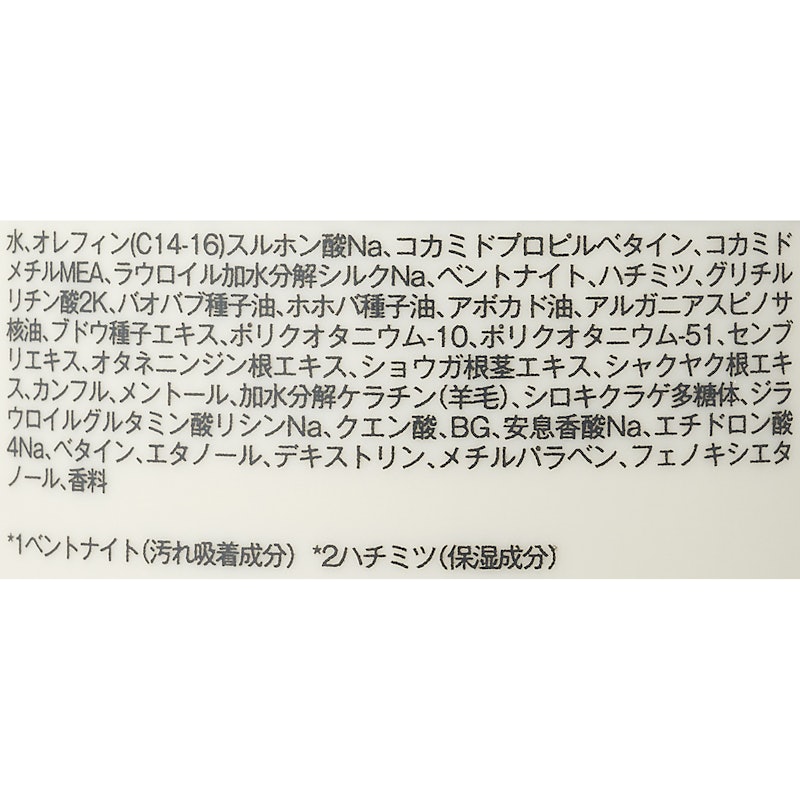 水、オレフィン(C14-16)スルホン酸Na、コカミドプロピルベタイン、コカミド
メチルMEA、ラウロイル加水分解シルクNa、ベントナイト、ハチミツ、グリチル
リチン酸2K、バオバブ種子油、ホホバ種子油、アボカド油、アルガニアスピノサ
核油、ブドウ種子エキス、ポリクオタニウム-10、ポリクオタニウム-51、センブ
リエキス、オタネニンジン根エキス、ショウガ根茎エキス、シャクヤク根エキ
ス、カンフル、メントール、加水分解ケラチン(羊毛)、シロキクラゲ多糖体、ジラ
ウロイルグルタミン酸リシンNa、クエン酸、BG、安息香酸Na、エチドロン酸
4Na、ベタイン、エタノール、デキストリン、メチルパラベン、フェノキシエタ
ノール、香料
*1ベントナイト(汚れ吸着成分) *2ハチミツ(保湿成分)